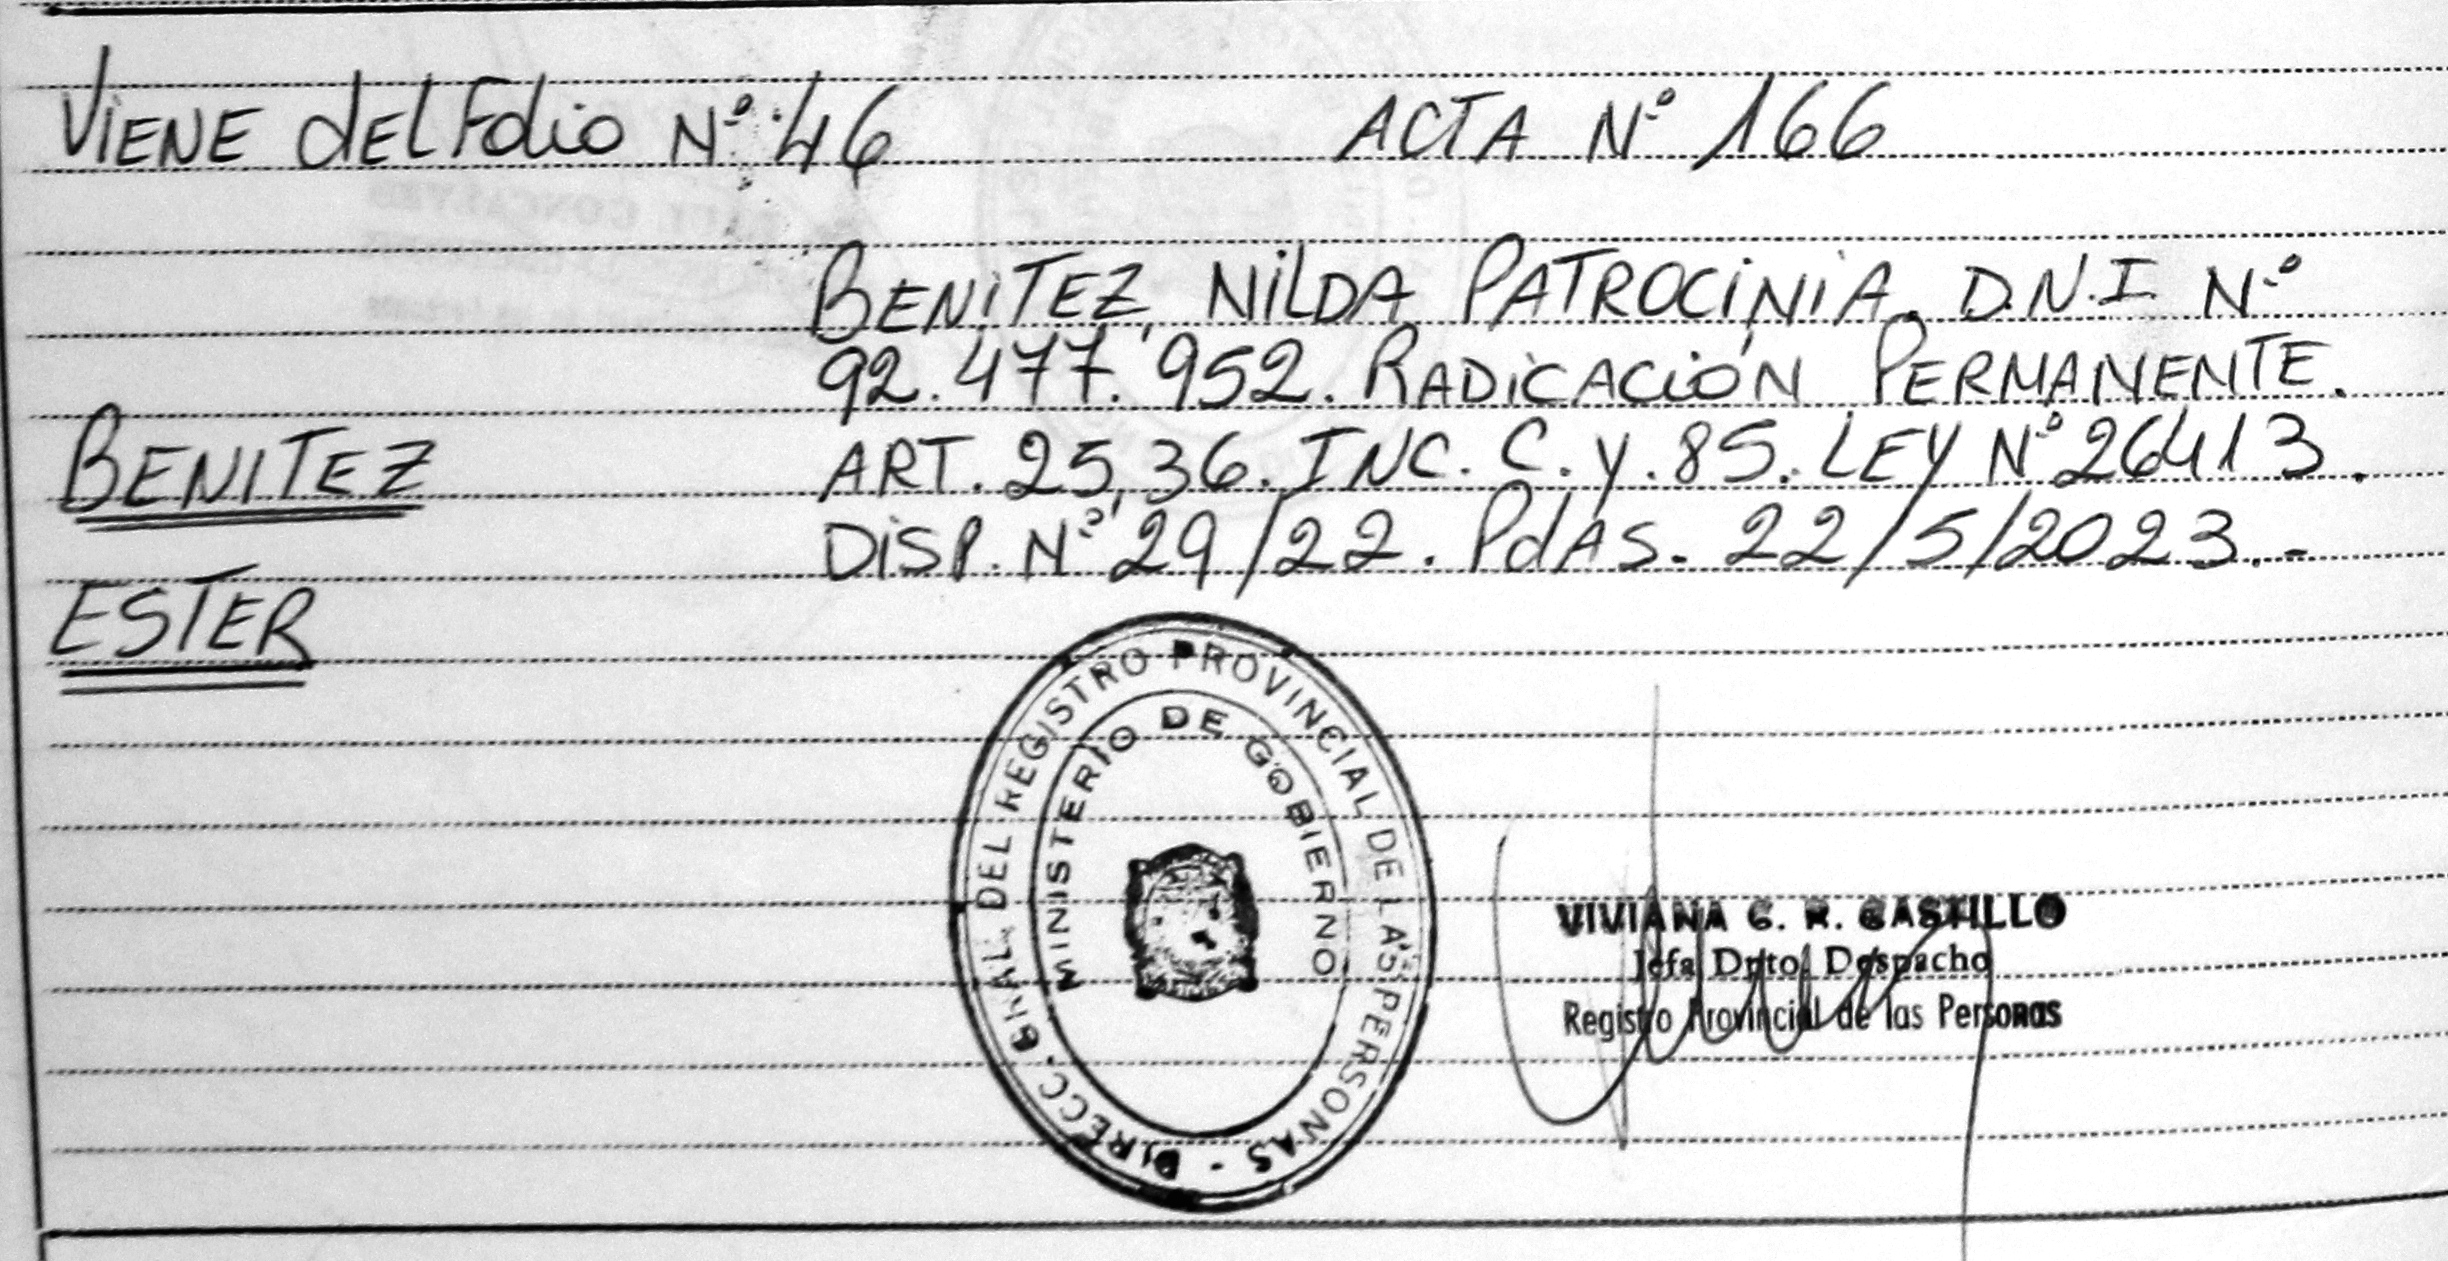 VIENE del Folio Nº 46
ACTA Nº 166
BENITEZ, NILDA PATROCINIA. D.N.I Nº
92.477.952. RADICACIÓN PERMANENTE.
BENITEZ
ART. 25, 36. INC. C. y. 85. LEY Nº 26413.
DISP. Nº 29/22. PdAS. 22/5/2023.-
ESTER
DIRECC. GRAL. DEL REGISTRO PROVINCIAL DE LAS PERSONAS -
MINISTERIO DE GOBIERNO
VIVIANA C. R. CASTILLO
Jefa Dpto. Despacho
Registro Provincial de las Personas